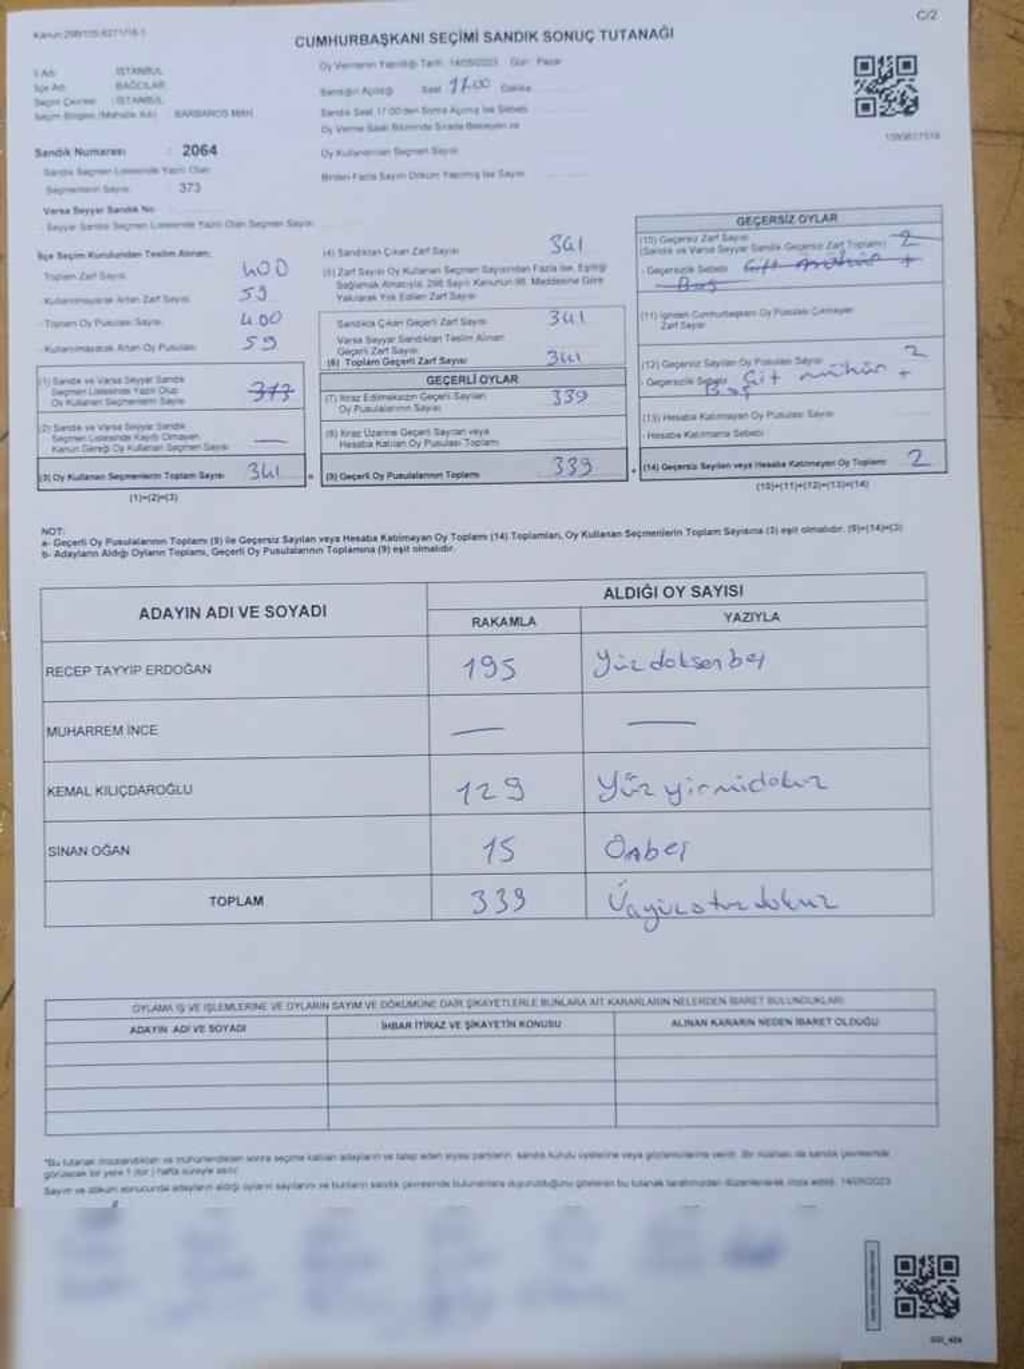 Kanun:298/105-6271/16-1
C/2
CUMHURBAŞKANI SEÇİMİ SANDIK SONUÇ TUTANAĞI
İl Adı İSTANBUL
İlçe Adı BAĞCILAR
Seçim Çevresi : İSTANBUL
Seçim Bölgesi (Mahalle Adı) BARBAROS MAH
Sandık Numarası : 2064
Sandık Seçmen Listesinde Yazılı Olan
Seçmenlerin Sayısı 373
Varsa Seyyar Sandık No
Seyyar Sandık Seçmen Listesinde Yazılı Olan Seçmen Sayısı
Oy Vermenin Yapıldığı Tarih 14/05/2023 Gün Pazar
Sandığın Açıldığı Saat 17.00 Dakika
Sandık Saat 17:00'den Sonra Açılmış İse Sebebi
Oy Verme Saati Bitiminde Sırada Bekleyen ve
Oy Kullandırılan Seçmen Sayısı
Birden Fazla Sayım Döküm Yapılmış İse Sayısı
İlçe Seçim Kurulundan Teslim Alınan;
Toplam Zarf Sayısı 400
- Kullanılmayarak Artan Zarf Sayısı 59
- Toplam Oy Pusulası Sayısı 400
- Kullanılmayarak Artan Oy Pusulası 59
(1) Sandık ve Varsa Seyyar Sandık
Seçmen Listesinde Yazılı Olup
Oy Kullanan Seçmenlerin Sayısı 373
(2) Sandık ve Varsa Seyyar Sandık
Seçmen Listesinde Kaydı Olmayan
Kanun Gereği Oy Kullanan Seçmen Sayısı —
(3) Oy Kullanan Seçmenlerin Toplam Sayısı 341
(1)+(2)=(3)
(4) Sandıktan Çıkan Zarf Sayısı 341
(5) Zarf Sayısı Oy Kullanan Seçmen Sayısından Fazla İse, Eşitliği
Sağlamak Amacıyla, 298 Sayılı Kanunun 98. Maddesine Göre
Yakılarak Yok Edilen Zarf Sayısı
Sandıkta Çıkan Geçerli Zarf Sayısı 341
Varsa Seyyar Sandıktan Teslim Alınan
Geçerli Zarf Sayısı
(6) Toplam Geçerli Zarf Sayısı 341
GEÇERLİ OYLAR
(7) İtiraz Edilmeksizin Geçerli Sayılan
Oy Pusulalarının Sayısı 339
(8) İtiraz Üzerine Geçerli Sayılan veya
Hesaba Katılan Oy Pusulası Toplamı
(9) Geçerli Oy Pusulalarının Toplamı 339
GEÇERSİZ OYLAR
(10) Geçersiz Zarf Sayısı
(Sandık ve Varsa Seyyar Sandık Geçersiz Zarf Toplamı) 2
- Geçersizlik Sebebi Çift mühür +
Boş
(11) İçinden Cumhurbaşkanı Oy Pusulası Çıkmayan
Zarf Sayısı
(12) Geçersiz Sayılan Oy Pusulası Sayısı 2
- Geçersizlik Sebebi Çift mühür +
Boş
(13) Hesaba Katılmayan Oy Pusulası Sayısı
- Hesaba Katılmama Sebebi
(14) Geçersiz Sayılan veya Hesaba Katılmayan Oy Toplamı 2
(10)+(11)+(12)+(13)=(14)
NOT:
a- Geçerli Oy Pusulalarının Toplamı (9) ile Geçersiz Sayılan veya Hesaba Katılmayan Oy Toplamı (14) Toplamları, Oy Kullanan Seçmenlerin Toplam Sayısına (3) eşit olmalıdır. (9)+(14)=(3)
b- Adayların Aldığı Oyların Toplamı, Geçerli Oy Pusulalarının Toplamına (9) eşit olmalıdır.
ADAYIN ADI VE SOYADI ALDIĞI OY SAYISI
RAKAMLA YAZIYLA
RECEP TAYYİP ERDOĞAN 195 Yüzdoksanbeş
MUHARREM İNCE — —
KEMAL KILIÇDAROĞLU 129 Yüzyirmidokuz
SİNAN OĞAN 15 Onbeş
TOPLAM 339 Üçyüzotuzdokuz
OYLAMA İŞ VE İŞLEMLERİNE VE OYLARIN SAYIM VE DÖKÜMÜNE DAİR ŞİKAYETLERLE BUNLARA AİT KARARLARIN NELERDEN İBARET BULUNDUKLARI
ADAYIN ADI VE SOYADI İHBAR İTİRAZ VE ŞİKAYETİN KONUSU ALINAN KARARIN NEDEN İBARET OLDUĞU
*Bu tutanak imzalandıktan ve mühürlendikten sonra seçime katılan adayların ve talep eden siyasi partilerin sandık kurulu üyelerine veya gözlemcilerine verilir. Bir nüshası da sandık çevresinde
görülecek bir yere 1 (bir) hafta süreyle asılır.
Sayım ve döküm sonucunda adayların aldığı oyların sayılarını ve bunların sandık çevresinde bulunanlara duyurulduğunu gösteren bu tutanak tarafımızdan düzenlenerek imza edildi. 14/05/2023